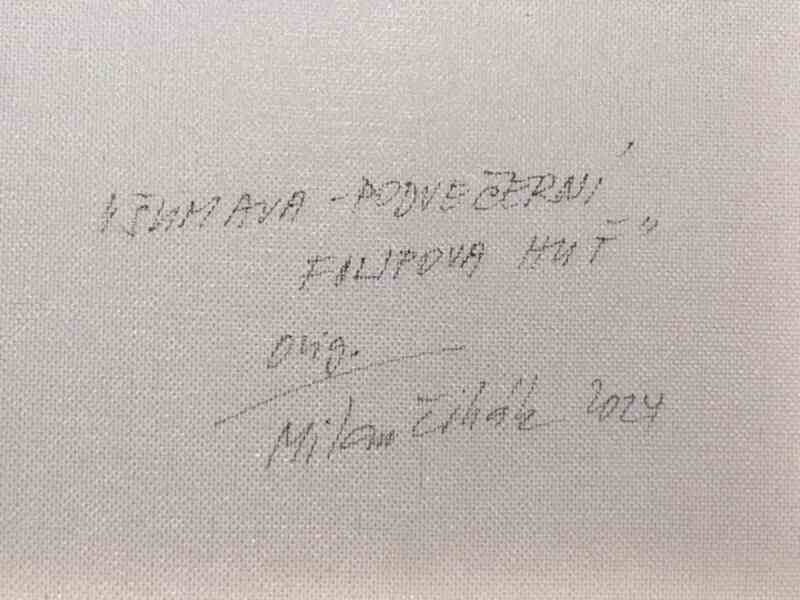 "ŠUMAVA - PODVEČERNÍ
FILIPOVA HUŤ"
orig.
Milan Čihák 2024